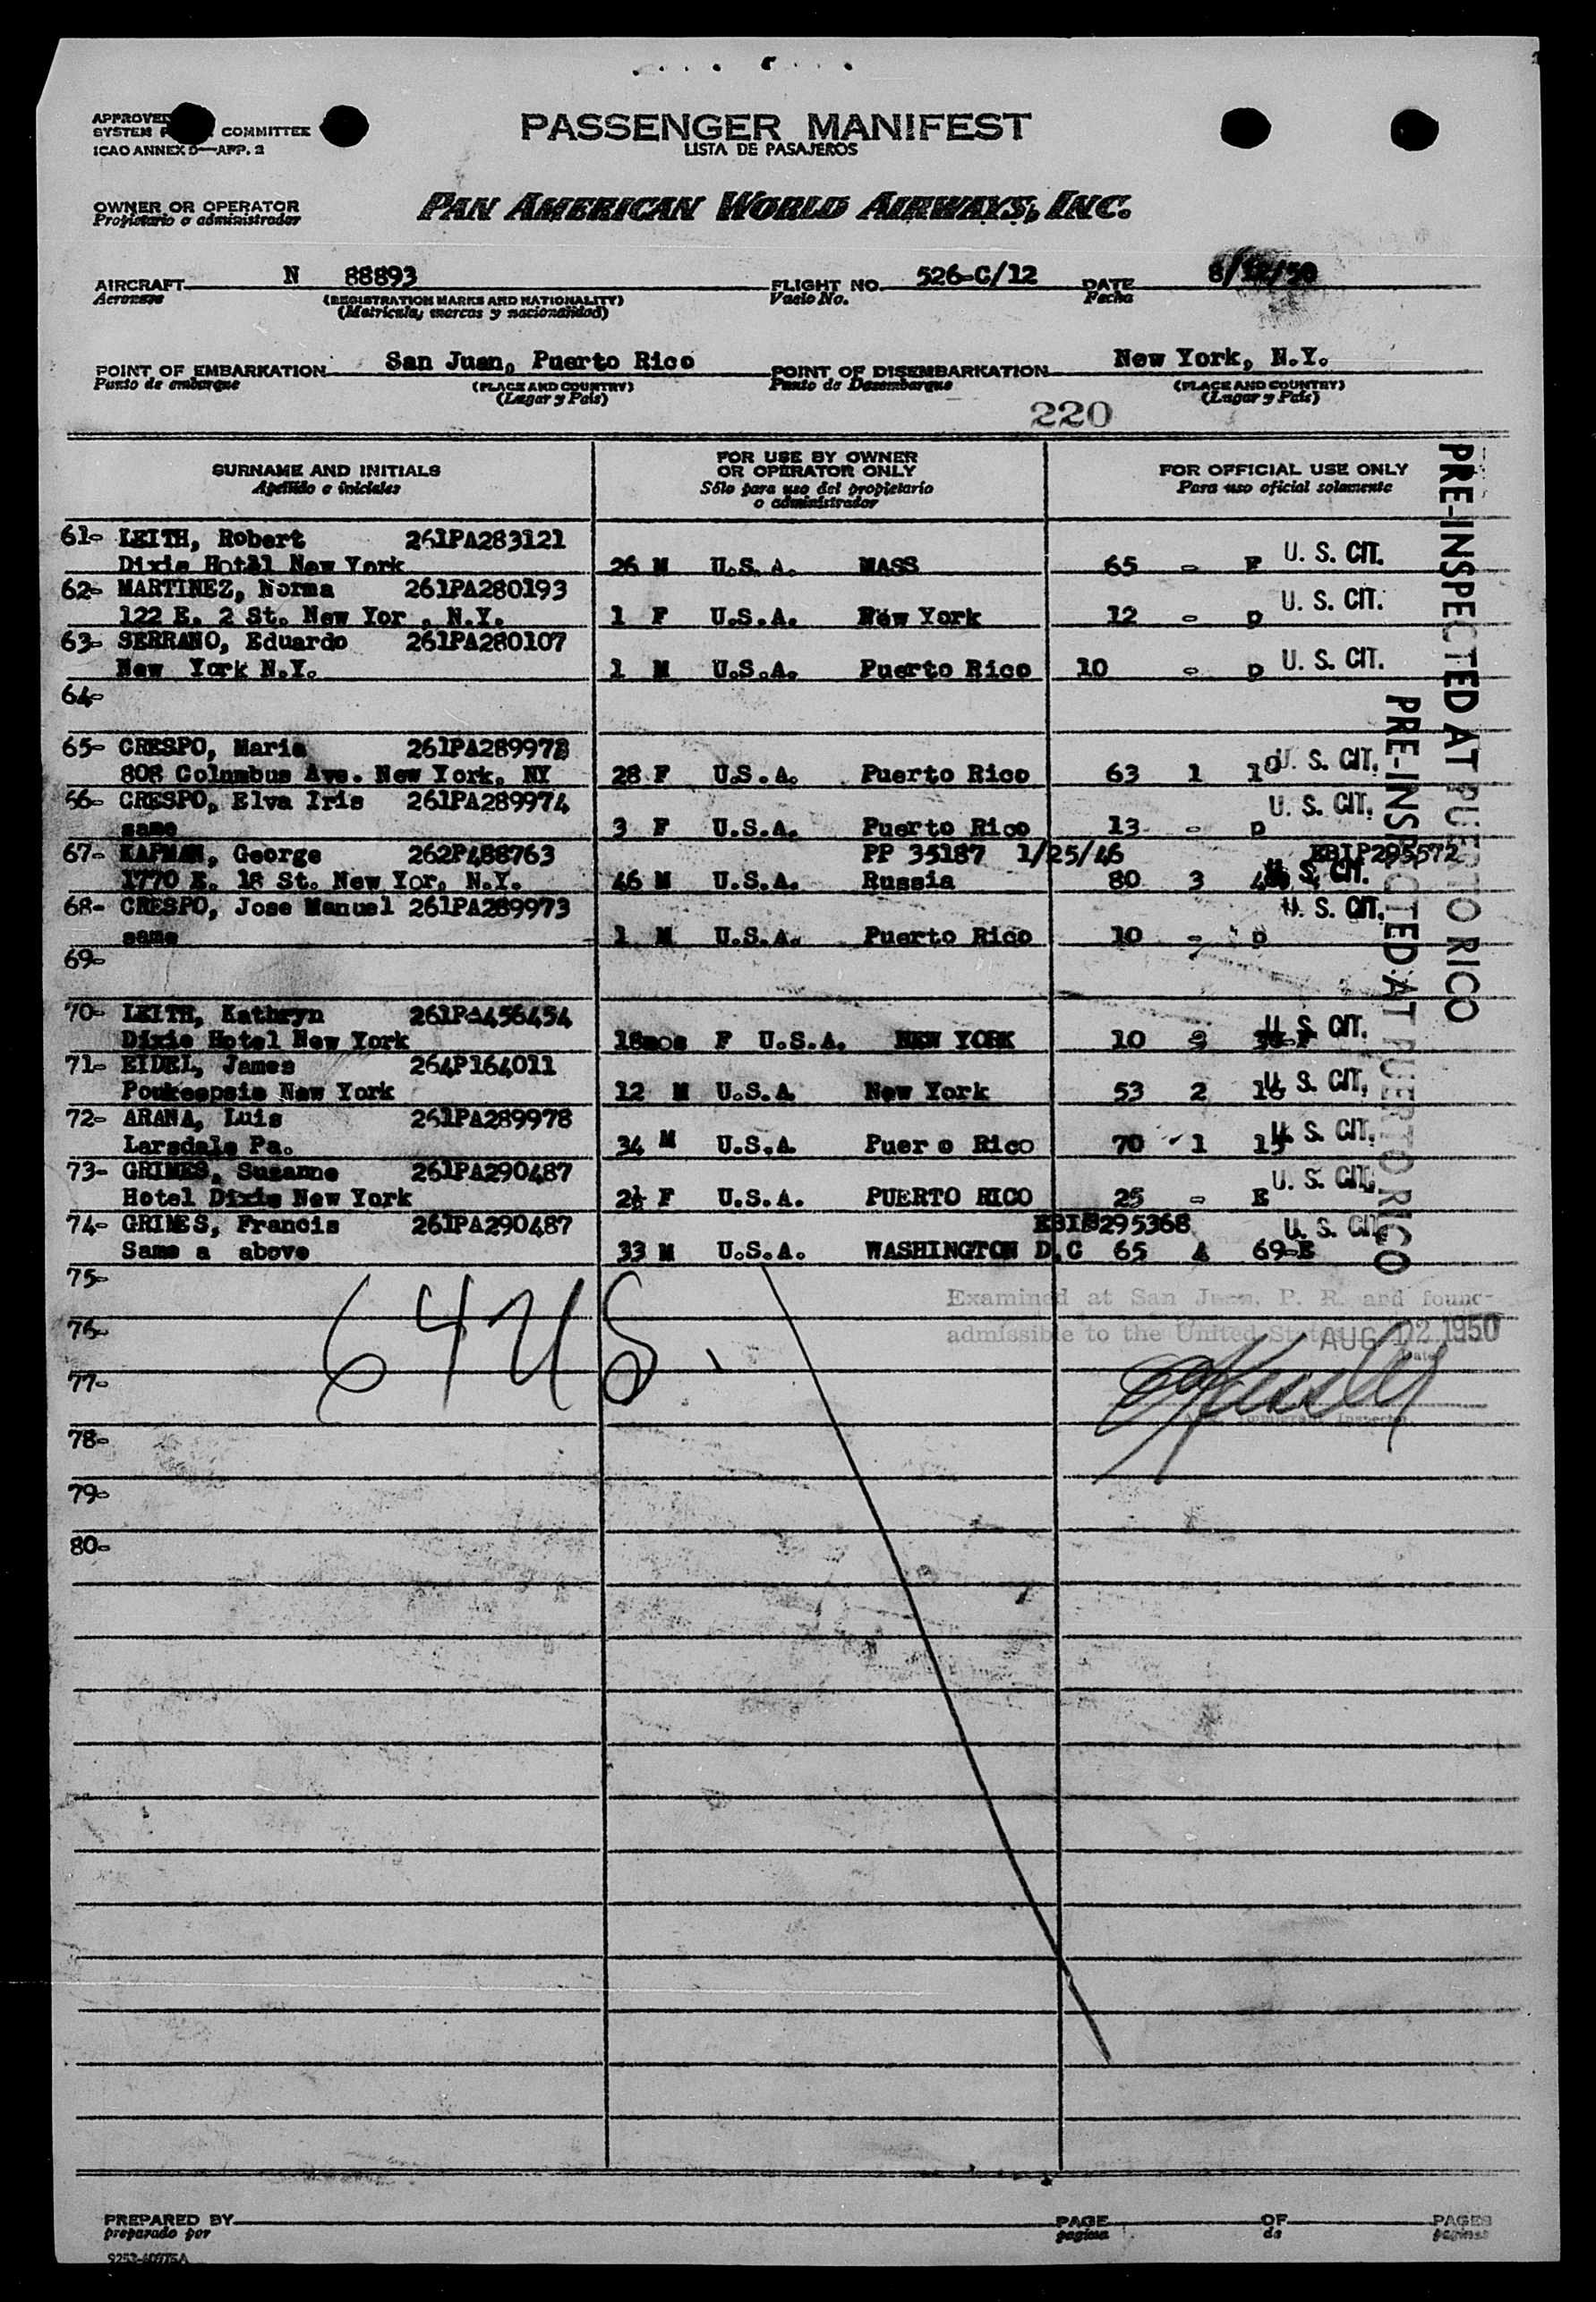 PASSENGER MANIFEST
LISTA DE PASAJEROS
APPROVED
SYSTEM COMMITTEE
ICAO ANNEX 9—APP. 2
OWNER OR OPERATOR
Propietario o administrador
PAN AMERICAN WORLD AIRWAYS, INC.
AIRCRAFT N 88893 FLIGHT NO. 526-C/12 DATE 8/12/50
Aeronave (REGISTRATION MARKS AND NATIONALITY) Vuelo No. Fecha
(Matricula, marcas y nacionalidad)
POINT OF EMBARKATION San Juan, Puerto Rico POINT OF DISEMBARKATION New York, N.Y.
Punto de embarque (PLACE AND COUNTRY) Punto de Desembarque (PLACE AND COUNTRY)
(Lugar y Pais) (Lugar y Pais)
220
SURNAME AND INITIALS FOR USE BY OWNER OR OPERATOR ONLY FOR OFFICIAL USE ONLY
Apellido e iniciales Sólo para uso del propietario o administrador Para uso oficial solamente
61- LEITH, Robert 261PA283121
Dixie Hotel New York 26 M U.S.A. MASS 65 - F U. S. CIT.
62- MARTINEZ, Norma 261PA280193
122 E. 2 St. New Yor , N.Y. 1 F U.S.A. New York 12 - D U. S. CIT.
63- SERRANO, Eduardo 261PA280107
New York N.Y. 1 M U.S.A. Puerto Rico 10 - D U. S. CIT.
64-
65- CRESPO, Maria 261PA289972
808 Columbus Ave. New York, NY 28 F U.S.A. Puerto Rico 63 1 10 U. S. CIT.
66- CRESPO, Elva Iris 261PA289974
same 3 F U.S.A. Puerto Rico 13 - D U. S. CIT.
67- KAPMAN, George 262P488763 PP 35187 1/25/46 EBIP295572
1770 E. 18 St. New Yor, N.Y. 46 M U.S.A. Russia 80 3 U. S. CIT.
68- CRESPO, Jose Manuel 261PA289973
same 1 M U.S.A. Puerto Rico 10 - D U. S. CIT.
69-
70- LEITH, Kathryn 261PA456454
Dixie Hotel New York 18mos F U.S.A. NEW YORK 10 U. S. CIT.
71- EIDEL, James 264P164011
Poukeepsie New York 12 M U.S.A. New York 53 2 16 U. S. CIT.
72- ARANA, Luis 261PA289978
Larsdale Pa. 34 M U.S.A. Puer o Rico 70 1 15 U. S. CIT.
73- GRIMES, Suzanne 261PA290487
Hotel Dixie New York 2½ F U.S.A. PUERTO RICO 25 - E U. S. CIT.
74- GRIMES, Francis 261PA290487 EBIP295368
Same a above 33 M U.S.A. WASHINGTON D.C 65 4 69-E U. S. CIT.
75-
76-
77-
78-
79-
80-
64 US
Examined at San Juan, P. R. and found
admissible to the United States AUG 12 1950
Date
Immigrant Inspector
PRE-INSPECTED AT PUERTO RICO
PRE-INSPECTED AT PUERTO RICO
PREPARED BY PAGE OF PAGES
preparado por pagina de paginas